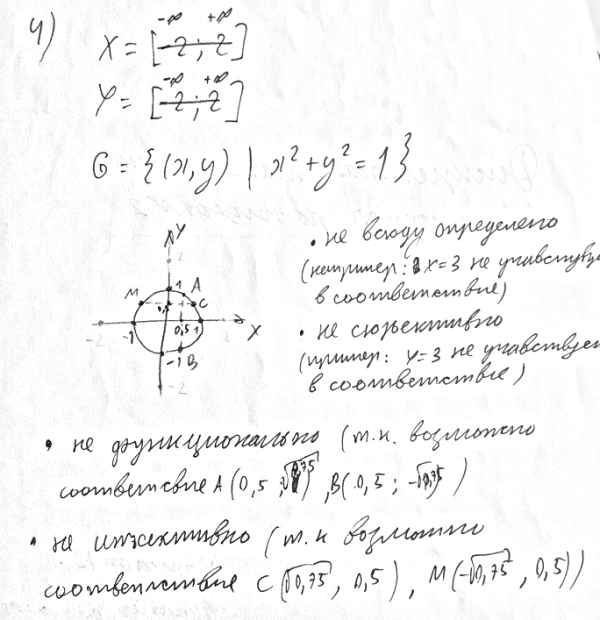 4)
-∞ +∞
X = [-2; 2]
-∞ +∞
Y = [-2; 2]
G = {(x,y) | x² + y² = 1}
Y
2
1 A
M C
-2 -1 0,5 1 X
-1 B
-2
• не всюду определено
(например: X=3 не учавствуе
в соответствие)
• не сюръективно
(пример: Y=3 не учавствует
в соответствие)
• не функционально (т.к. возможно
соответсвие A(0,5; √0,75), B(0,5; -√0,75)
• не инъективно (т.к возможно
соответствие C(√0,75, 0,5), M(-√0,75, 0,5))